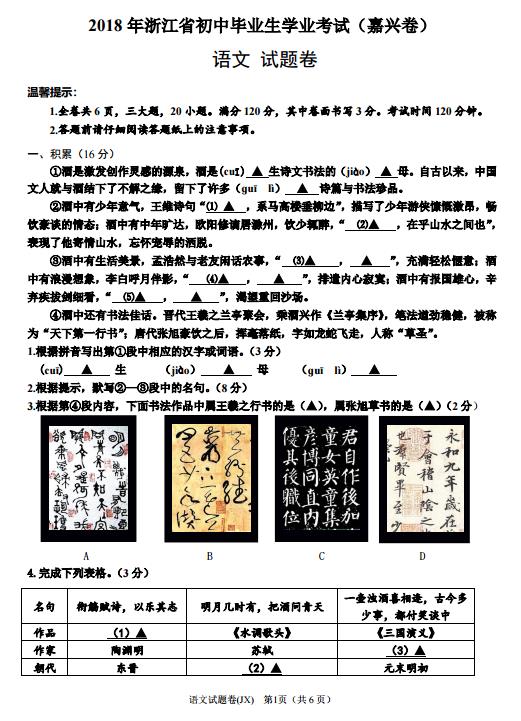 2018 年浙江省初中毕业生学业考试（嘉兴卷）
语文 试题卷
温馨提示：
1.全卷共 6 页，三大题，20 小题。满分 120 分，其中卷面书写 3 分。考试时间 120 分钟。
2.答题前请仔细阅读答题纸上的注意事项。
一、积累（16 分）
①酒是激发创作灵感的源泉，酒是(cuī) ▲ 生诗文书法的（jiào） ▲ 母。自古以来，中国
文人就与酒结下了不解之缘，留下了许多（guī lì） ▲ 诗篇与书法珍品。
②酒中有少年意气，王维诗句“⑴ ▲ ，系马高楼垂柳边”，描写了少年游侠慷慨激昂，畅
饮豪谈的情态；酒中有中年旷达，欧阳修谪居滁州，饮少辄醉，“ ⑵▲ ，在乎山水之间也”，
表现了他寄情山水，忘怀宠辱的洒脱。
③酒中有生活美景，孟浩然与老友闲话农事，“ ⑶▲ ， ▲ ”，充满轻松惬意；酒
中有浪漫想象，李白呼月伴影，“ ⑷▲ ， ▲ ”，排遣内心寂寞；酒中有报国雄心，辛
弃疾拔剑细看，“ ⑸▲ ， ▲ ”，渴望重回沙场。
④酒中还有书法佳话。晋代王羲之兰亭聚会，乘酒兴作《兰亭集序》，笔法遒劲稳健，被称
为“天下第一行书”；唐代张旭豪饮之后，挥毫落纸，字如龙蛇飞走，人称“草圣”。
1.根据拼音写出第①段中相应的汉字或词语。（3 分）
(cuī) ▲ 生 （jiào） ▲ 母 （guī lì） ▲
2.根据提示，默写②—⑤段中的名句。（8 分）
3.根据第④段内容，下面书法作品中属王羲之行书的是（▲），属张旭草书的是（▲）（2 分）
君自作後加
童女英童集
彦博同直内
優其後職位
永和九年歲在
于會稽山陰之
也羣賢畢至少
A B C D
4.完成下列表格。（3 分）
名句 衔觞赋诗，以乐其志 明月几时有，把酒问青天 一壶浊酒喜相逢，古今多少事，都付笑谈中
作品 （1）▲ 《水调歌头》 《三国演义》
作家 陶渊明 苏轼 （3）▲
朝代 东晋 （2）▲ 元末明初
语文试题卷(JX) 第1页（共 6 页）